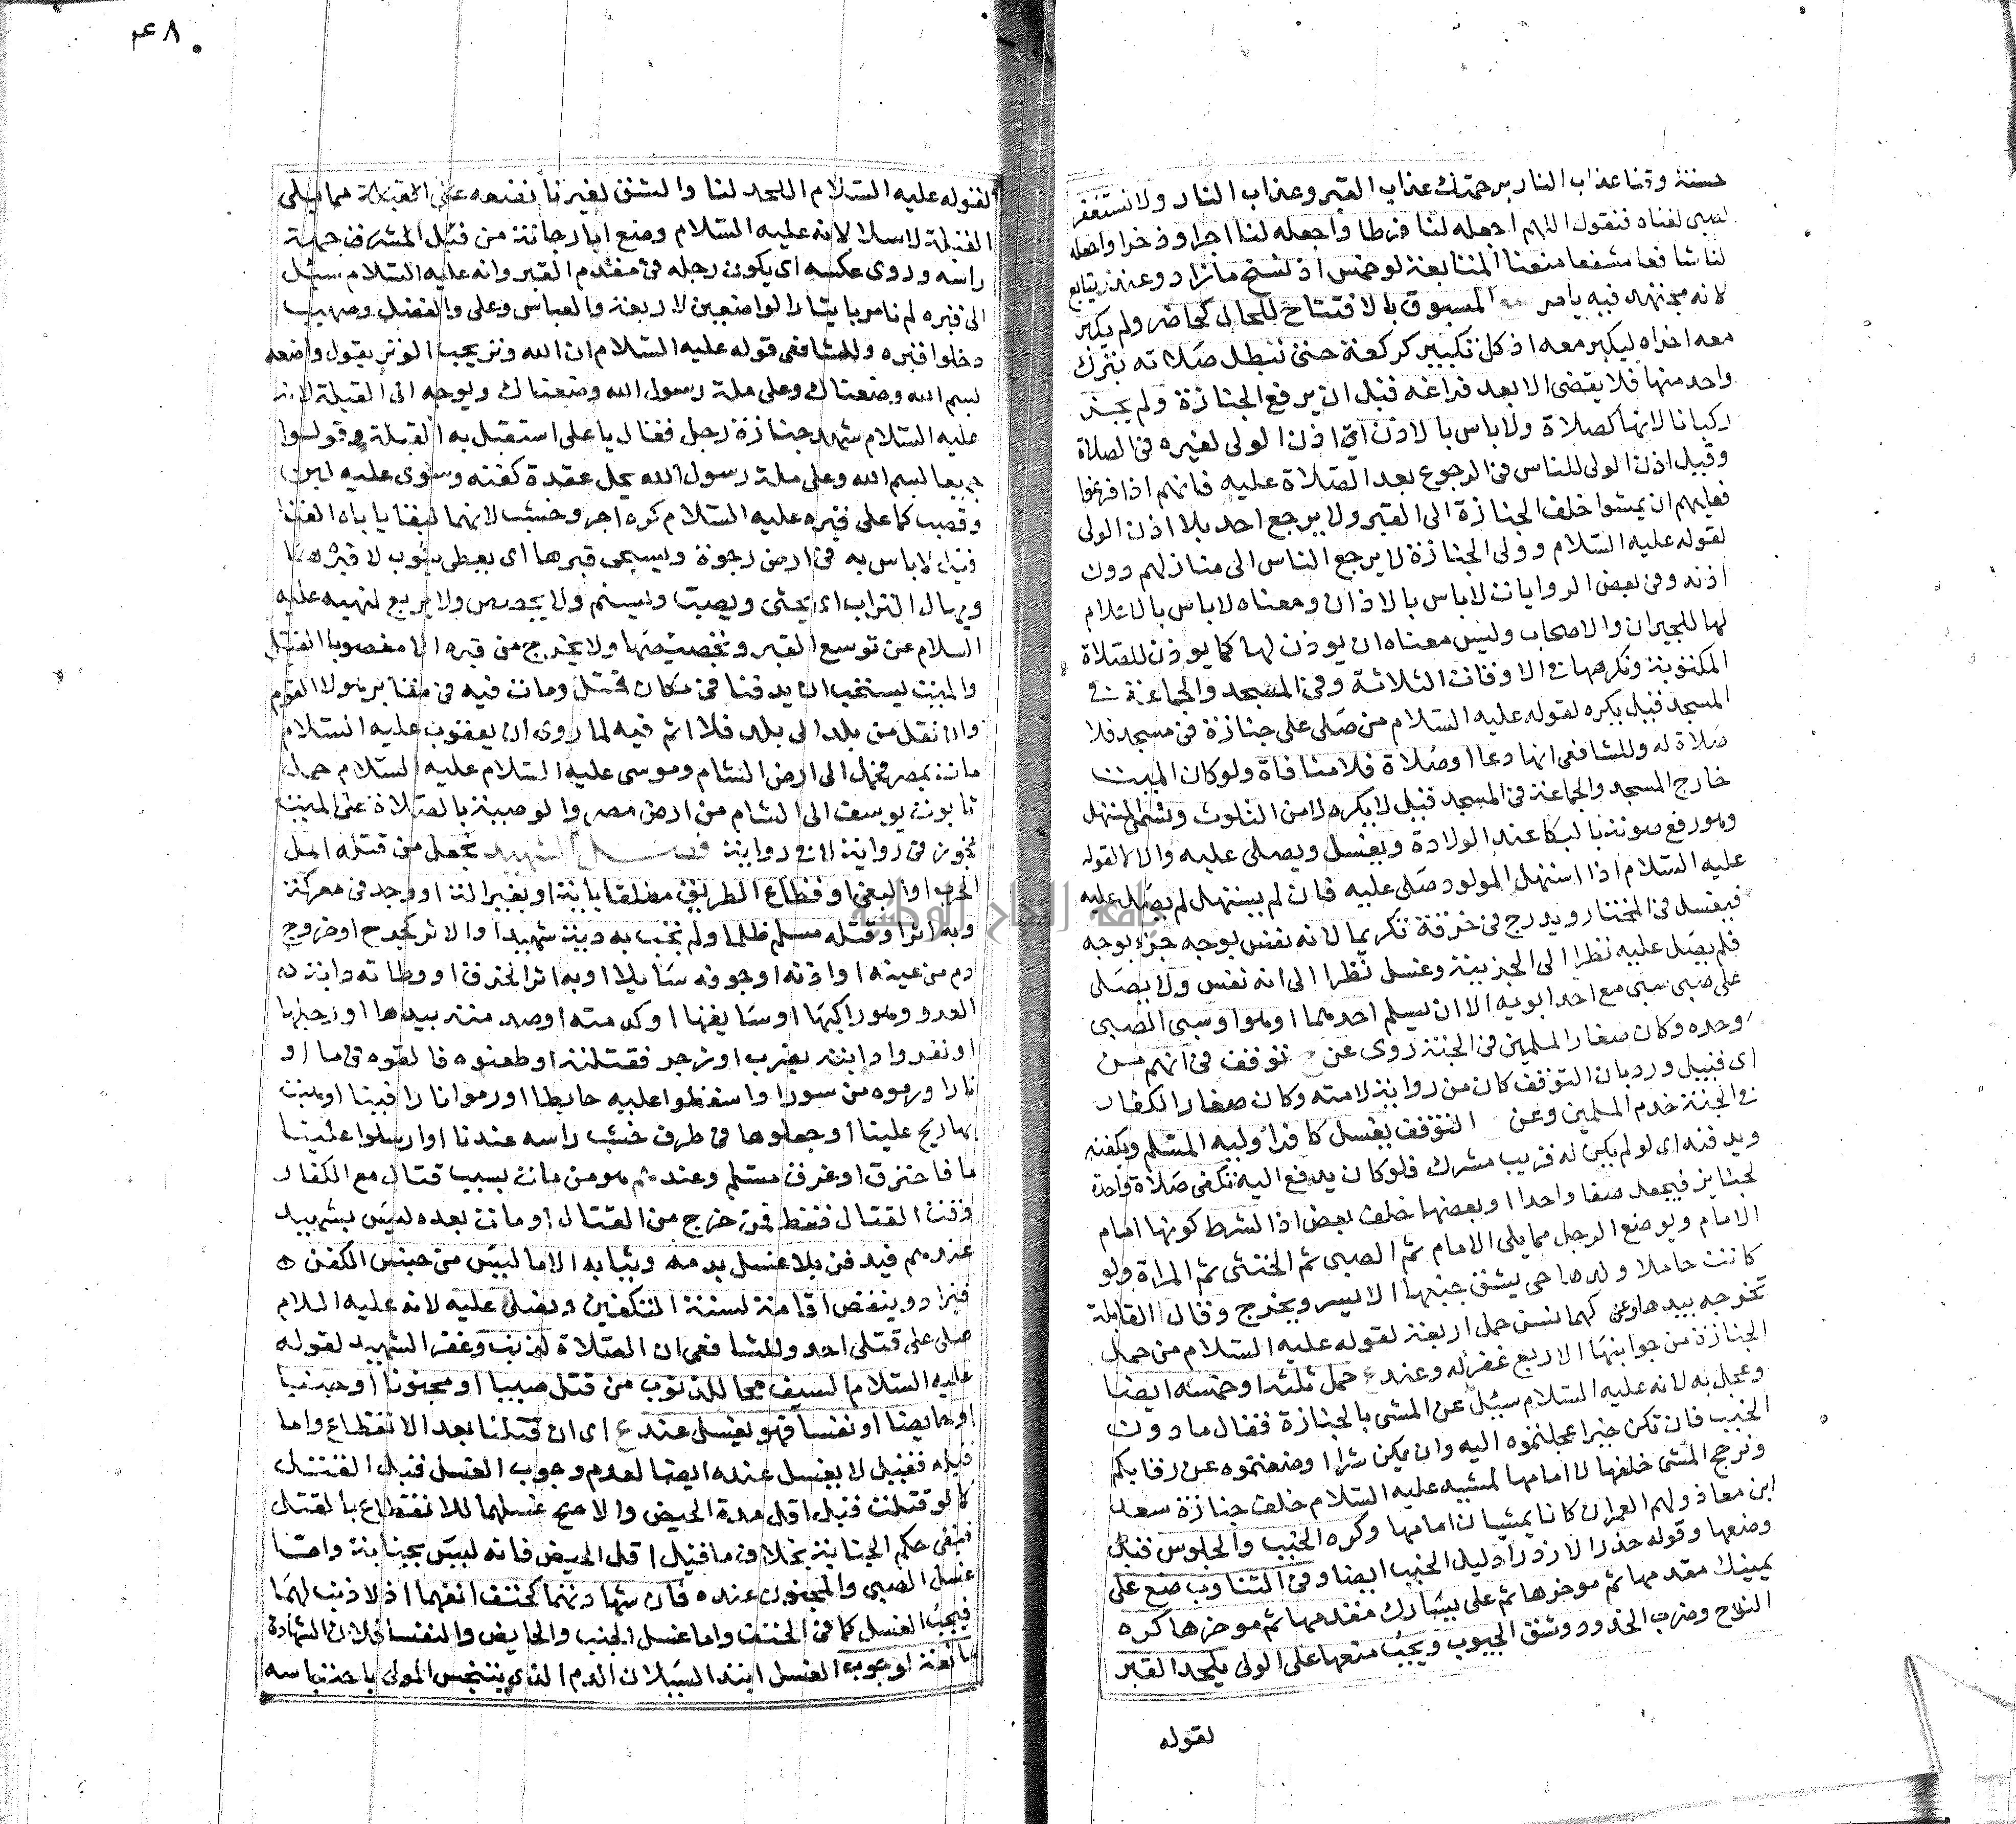 حسنة وقنا عذاب النار برحمتك عذاب القبر وعذاب النار ولا نستغفر
لصبي لغناه فنقول اللهم اجعله لنا فرطا واجعله لنا اجرا وذخرا واجعله
لنا شافعا مشفعا منعنا المتابعة لو خمس اذ نسخ ما زاد وعند زيتابع
لانه مجتهد فيه يامر المسبوق بالافتتاح للحال كحاضر ولم يكبر
معه اخراه ليكبر معه اذ كل تكبير كركعة حتى تبطل صلاته بترك
واحد منها فلا يقضى الا بعد فراغه قبل ان يرفع الجنازة ولم يجز
ركبانا لانها كصلاة ولا باس بالاذن اي اذن الولى لغيره فى الصلاة
وقيل اذن الولى للناس فى الرجوع بعد الصلاة عليه فانهم اذا فرغوا
فعليهم ان يمشوا خلف الجنازة الى القبر ولا يرجع احد بلا اذن الولى
لقوله عليه السلام وولى الجنازة لا يرجع الناس الى منازلهم دون
اذنه وفى بعض الروايات لا باس بالاذان ومعناه لا باس بالاعلام
لها للجيران والاصحاب وليس معناه ان يوذن لها كما يوذن للصلاة
المكتوبة ونكرهها فى الاوقات الثلاثة وفى المسجد والجماعة فى
المسجد قيل يكره لقوله عليه السلام من صلى على جنازة فى مسجد فلا
صلاة له وللشافعى انها دعا اوصلاة فلا منافاة ولو كان الميت
خارج المسجد والجماعة فى المسجد قيل لا يكره لامن التلوث ونسمى المستهل
وهو رفع صوته بالبكا عند الولادة ويغسل ويصلى عليه والا لا لقوله
عليه السلام اذا استهل المولود صلى عليه فان لم يستهل لم يصل عليه
فيغسل فى المختار ويدرج فى خرقة تكريما لانه نفس بوجه جزء بوجه
فلم يصل عليه نظرا الى الجزيية وغسل نظرا الى انه نفس ولا يصلى
على صبى سبى مع احد ابويه الا ان يسلم احدهما او هو او سبى الصبى
وحده وكان صغار المسلمين فى الجنة روى عن توقف فى انهم من
اى قبيل ورد بان التوقف كان من روايته لامته وكان صغار الكفار
فى الجنة خدم المسلمين وعن التوقف يغسل كافرا وليه المسلم ويكفنه
ويدفنه اى لو لم يكن له قريب مشرك فلو كان يدفع اليه تكفى صلاة واحدة
لجنايز فيجعل صفا واحدا او بعضها خلف بعض اذ الشرط كونها امام
الامام ويوضع الرجل مما يلى الامام ثم الصبى ثم الخنثى ثم المراة ولو
كانت حاملا ولدها حى يشق جنبها الايسر ويخرج وقال القابلة
تخرجه بيدها وعن كهما نسن حمل اربعة لقوله عليه السلام من حمل
الجنازة من جوانبها الاربع غفر له وعند ع حمل ثلثة او خمسه ايضا
وعجل به لانه عليه السلام سيل عن المشى بالجنازة فقال ما دون
الخبب فان تكن خيرا عجلتموه اليه وان يكن شرا وضعتموه عن رقابكم
ونرجح المشى خلفها لا امامها لمشيه عليه السلام خلف جنازة سعد
ابن معاذ ولهم العمران كانا يمشيان امامها وكره الخبب والجلوس قبل
وضعها وقوله حذر الازورا دليل الخبب ايضا وفى التناوب ضع على
يمينك مقدمها ثم موخرها ثم على يسارك مقدمها ثم موخرها كره
النلاح وضرب الخدود وشق الجيوب ويجب منعها على الولى يلحد القبر
لقوله
٤٨
لقوله عليه السلام اللحد لنا والشق لغيرنا نضعه على القبلة مما يلى
القبلة لا سلا لانه عليه السلام وضع ابا دجانة من قبل المشرق جهة
راسه وروى عكسه اى يكون رجله فى مقدم القبر وانه عليه السلام سيل
الى قبره لم نامر بايتار الواضعين لا ربعة والعباس وعلى والفضل وصهيب
دخلوا قبره وللشافعى قوله عليه السلام ان الله وتر يحب الوتر يقول واضعه
بسم الله وضعناك وعلى ملة رسول الله وضعناك ويوجه الى القبلة لانه
عليه السلام شهد جنازة رجل فقال يا على استقبل به القبلة وقولوا
جميعا بسم الله وعلى ملة رسول الله يحل عقدة كفنه وسوى عليه لبن
وقصب كما على قبره عليه السلام كره اجر وخشب لانهما لبقا ياباه الفنا
قيل لا باس به فى ارض رخوة ويسجى قبرها اى يغطى بثوب لا قبره
ويهال التراب اى يحثى ويصب ويسنم ولا يجصص ولا يربع لنهيه عليه
السلام عن توسع القبر وتجصيصها ولا يخرج من قبره الا مغصوبا القتيل
والميت يستحب ان يدفنا فى مكان قتل ومات فيه فى مقابر هولا القوم
وان نقل من بلد الى بلد فلا اثم فيه لما روى ان يعقوب عليه السلام
مات بمصر فحمل الى ارض الشام وموسى عليه السلام عليه السلام حمل
تابوت يوسف الى الشام من ارض مصر والوصية بالصلاة على الميت
تجوز فى رواية لا فى رواية فصل الشهيد يجعل من قتله اهل
الحرب او البغى او قطاع الطريق مطلقا باية او بغير الة او وجد فى معركة
وبه اثر او قتله مسلم ظلما ولم تجب به دية شهيدا والاثر كجرح او خروج
دم من عينه او اذنه او جوفه سايلا او به اثر الحرق او وطاته دابة
العدو وهو راكبها او سايقها او كدمته او صدمته بيدها او رجلها
او نفروا دابته بضرب او زجر فقتلته او طعنوه فالقوه فى ما او
نارا ورموه من سور او اسقطوا عليه حايطا او رموا نارا فينا او هبت
بها ريح علينا او جعلوها فى طرف خشب راسه عندنا او ارسلوا علينا
ما فاحترق او غرق مسلم وعندهم هو من مات بسبب قتال مع الكفار
وقت القتال فقط فمن خرج من القتال او مات بعده ليس بشهيد
عندهم فيدفن بلا غسل بدمه وثيابه الا ما ليس من جنس الكفن
فيزاد وينقص اقامة لسنة التكفين ويصلى عليه لانه عليه السلام
صلى على قتلى احد وللشافعى ان الصلاة لذنب وغفر الشهيد لقوله
عليه السلام السيف محا للذنوب من قتل صبيا او مجنونا او جنبا
او حايضا او نفسا فهو يغسل عند ع اى ان قتلنا بعد الانقطاع واما
قبله فقيل لا يغسل عنده ايضا لعدم وجوب الغسل قبل القتل
كما لو قتلت قبل اقل مدة الحيض والاصح غسلهما للانقطاع بالقتل
فبقى حكم الجنابة بخلاف ما قبل اقل الحيض فانه ليس بجنابة واما
غسل الصبى والمجنون عنده فان شهادتهما كحتف انفهما اذ لا ذنب لهما
فيجب الغسل كما فى الحتف واما غسل الجنب والحايض والنفسا فلان الشهادة
مانعة لوجوب الغسل ابتدا لسيلان الدم الذى يتنجس المولى باحتباسه